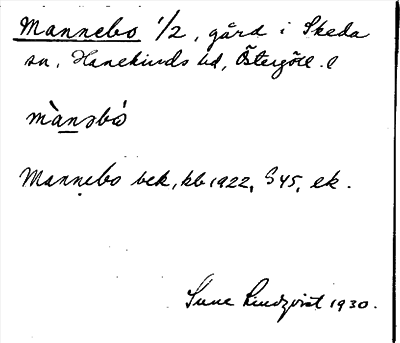 Mannebo 1/2, gård i Skeda
sn, Hanekinds hd, Östergötl. l
mànəbó
Mannebo bek, kb 1922, § 45, ek.
Sune Lindqvist 1930.